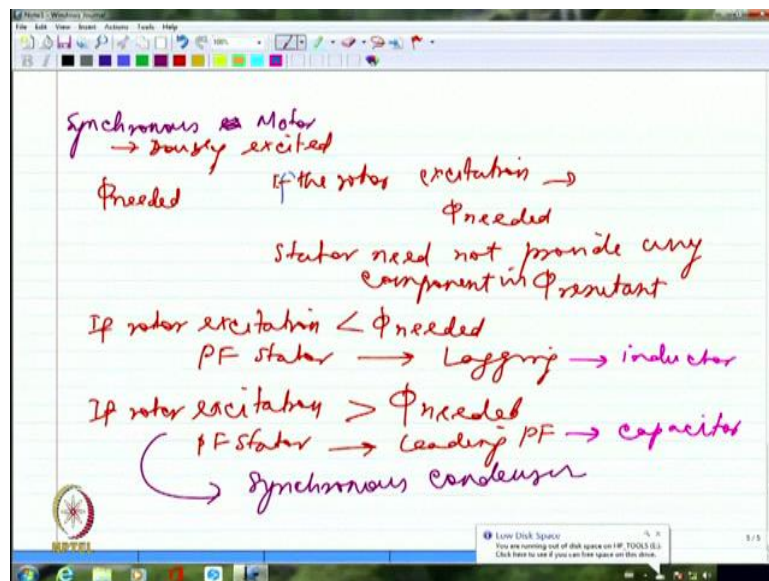 Note5 - Windows Journal
File Edit View Insert Actions Tools Help
100%
B I
Synchronous Motor
→ Doubly excited
Φneeded
If the rotor excitation →
Φneeded
Stator need not provide any
component in Φresultant
If rotor excitation < Φneeded
PF stator → Lagging → inductor
If rotor excitation > Φneeded
PF stator → Leading PF → capacitor
Synchronous condenser
NPTEL
Low Disk Space
You are running out of disk space on HP_TOOLS (E:).
Click here to see if you can free space on this drive.
5/5